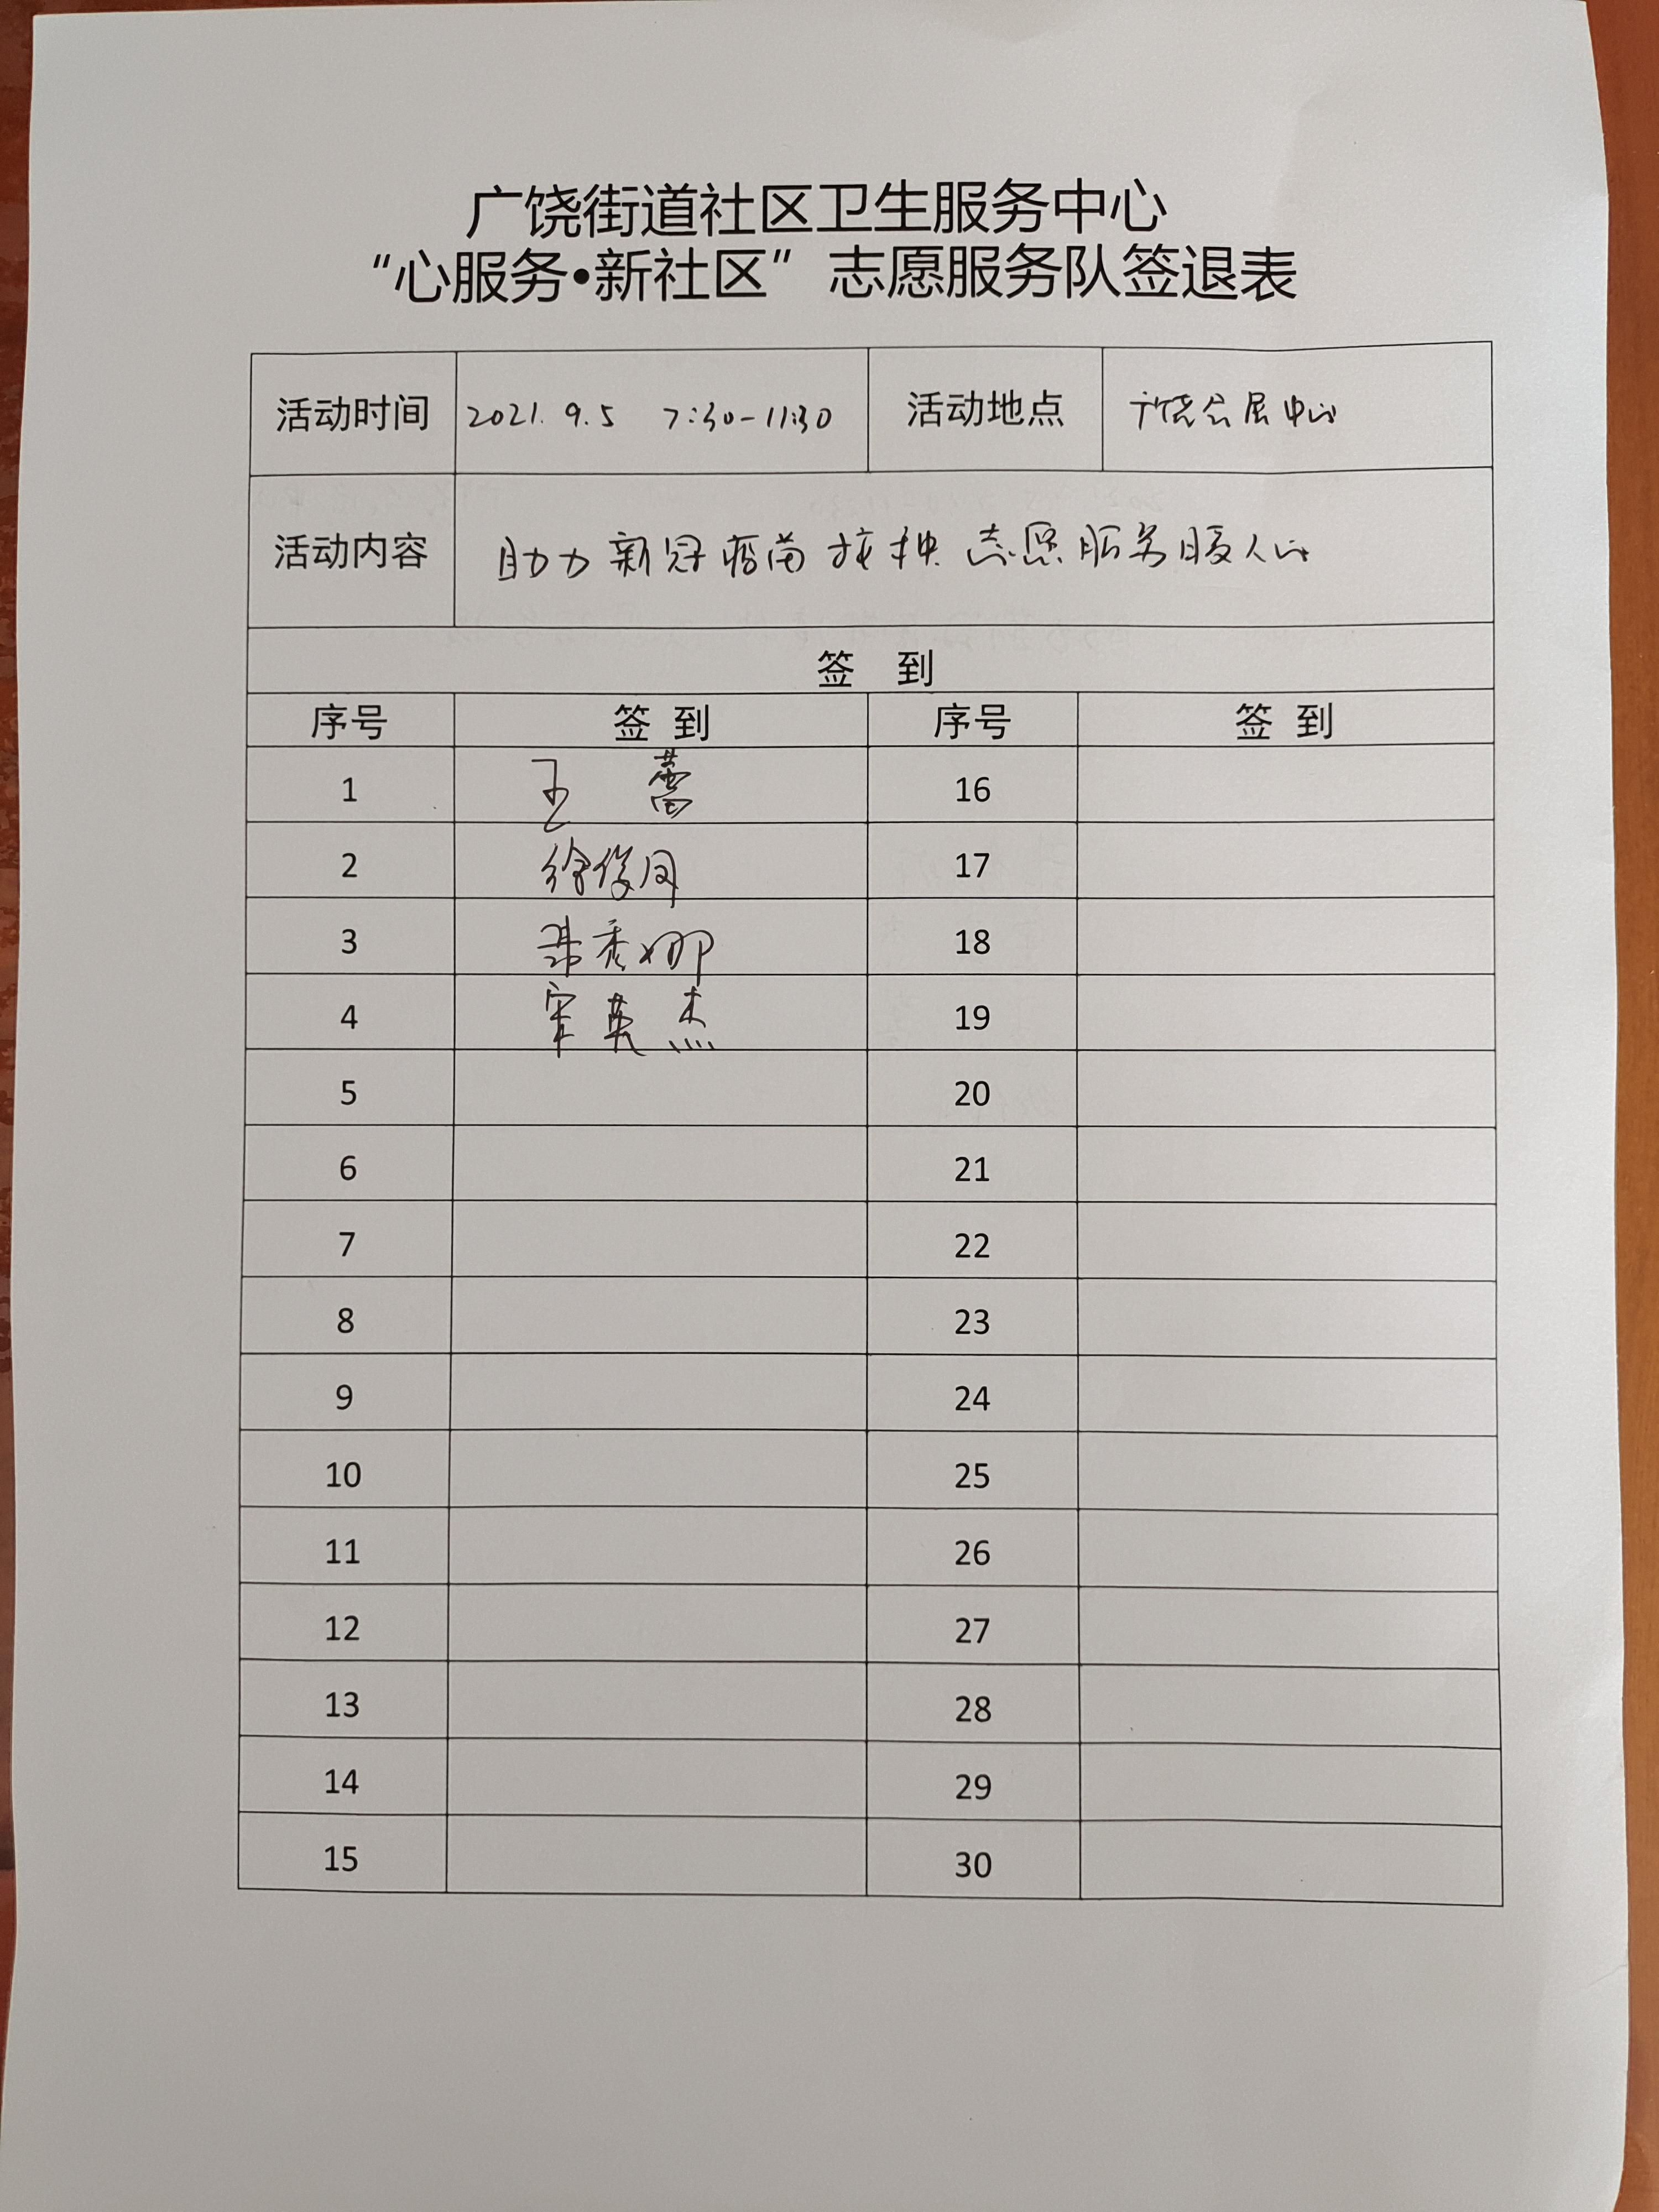 广饶街道社区卫生服务中心
“心服务•新社区”志愿服务队签退表
活动时间 2021.9.5 7:30-11:30 活动地点 广饶会展中心
活动内容 助力新冠疫苗接种 志愿服务暖人心
签 到
序号 签 到 序号 签 到
1 王 蕾 16
2 徐俊同 17
3 秀娜 18
4 英杰 19
5 20
6 21
7 22
8 23
9 24
10 25
11 26
12 27
13 28
14 29
15 30